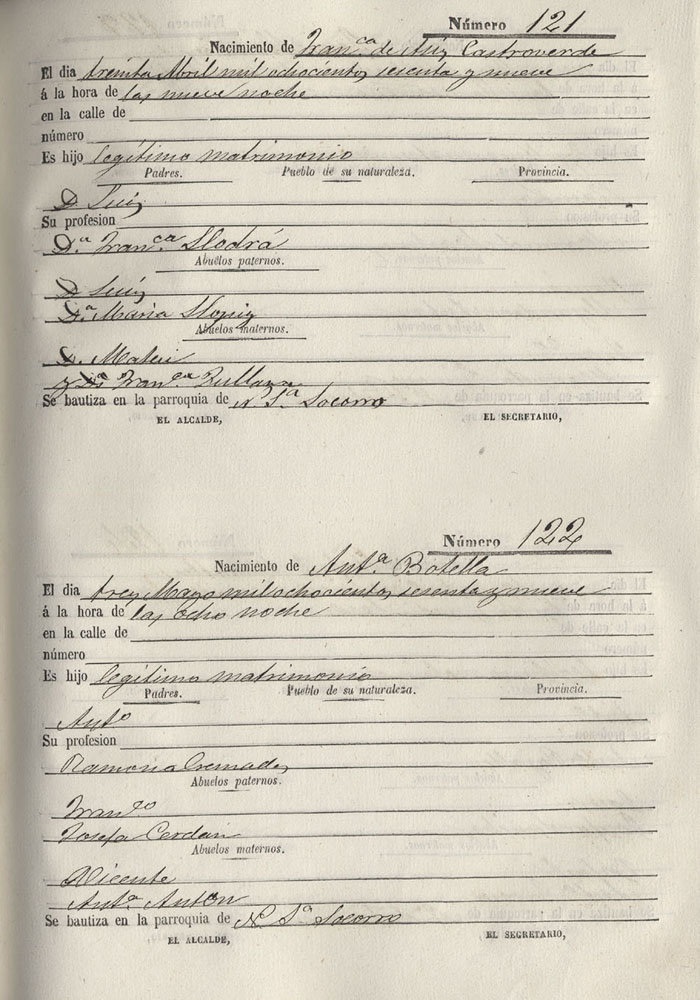 Número 121
Nacimiento de Fran.ca de Asis Castroverde
El dia treinta Abril mil ochocientos sesenta y nueve
á la hora de las nueve noche
en la calle de
número
Es hijo legítimo matrimonio
Padres. Pueblo de su naturaleza. Provincia.
D. Luis
Su profesion
D.ª Fran.ca Llodrá
Abuelos paternos.
D. Luis
D.ª Maria
Abuelos maternos.
D. Mateu
y D.ª Fran.ca
Se bautiza en la parroquia de N S.ª Socorro
EL ALCALDE, EL SECRETARIO,
Número 122
Nacimiento de Ant.ª Botella
El dia tres Mayo mil ochocientos sesenta y nueve
á la hora de las ocho noche
en la calle de
número
Es hijo legítimo matrimonio
Padres. Pueblo de su naturaleza. Provincia.
Ant.º
Su profesion
Ramona Cremades
Abuelos paternos.
Fran.co
Josefa Cerdan
Abuelos maternos.
Vicente
Ant.ª Anton
Se bautiza en la parroquia de N. S.ª Socorro
EL ALCALDE, EL SECRETARIO,